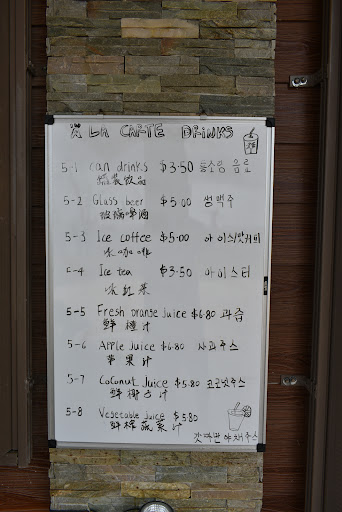 A La CARTE DRINKS
5-1 can drinks $3.50 음료
罐裝飲品
5-2 Glass beer $5.00 병맥주
玻璃啤酒
5-3 Ice coffee $5.00 아이스/핫커피
冰咖啡
5-4 Ice tea $3.50 아이스티
冰紅茶
5-5 Fresh orange Juice $6.80 과즙
鮮橙汁
5-6 Apple Juice $6.80 사과주스
苹果汁
5-7 Coconut Juice $5.80 코코넛주스
鮮椰子汁
5-8 Vegetable Juice $5.80
鮮榨蔬菜汁
갓짜만 야채주스